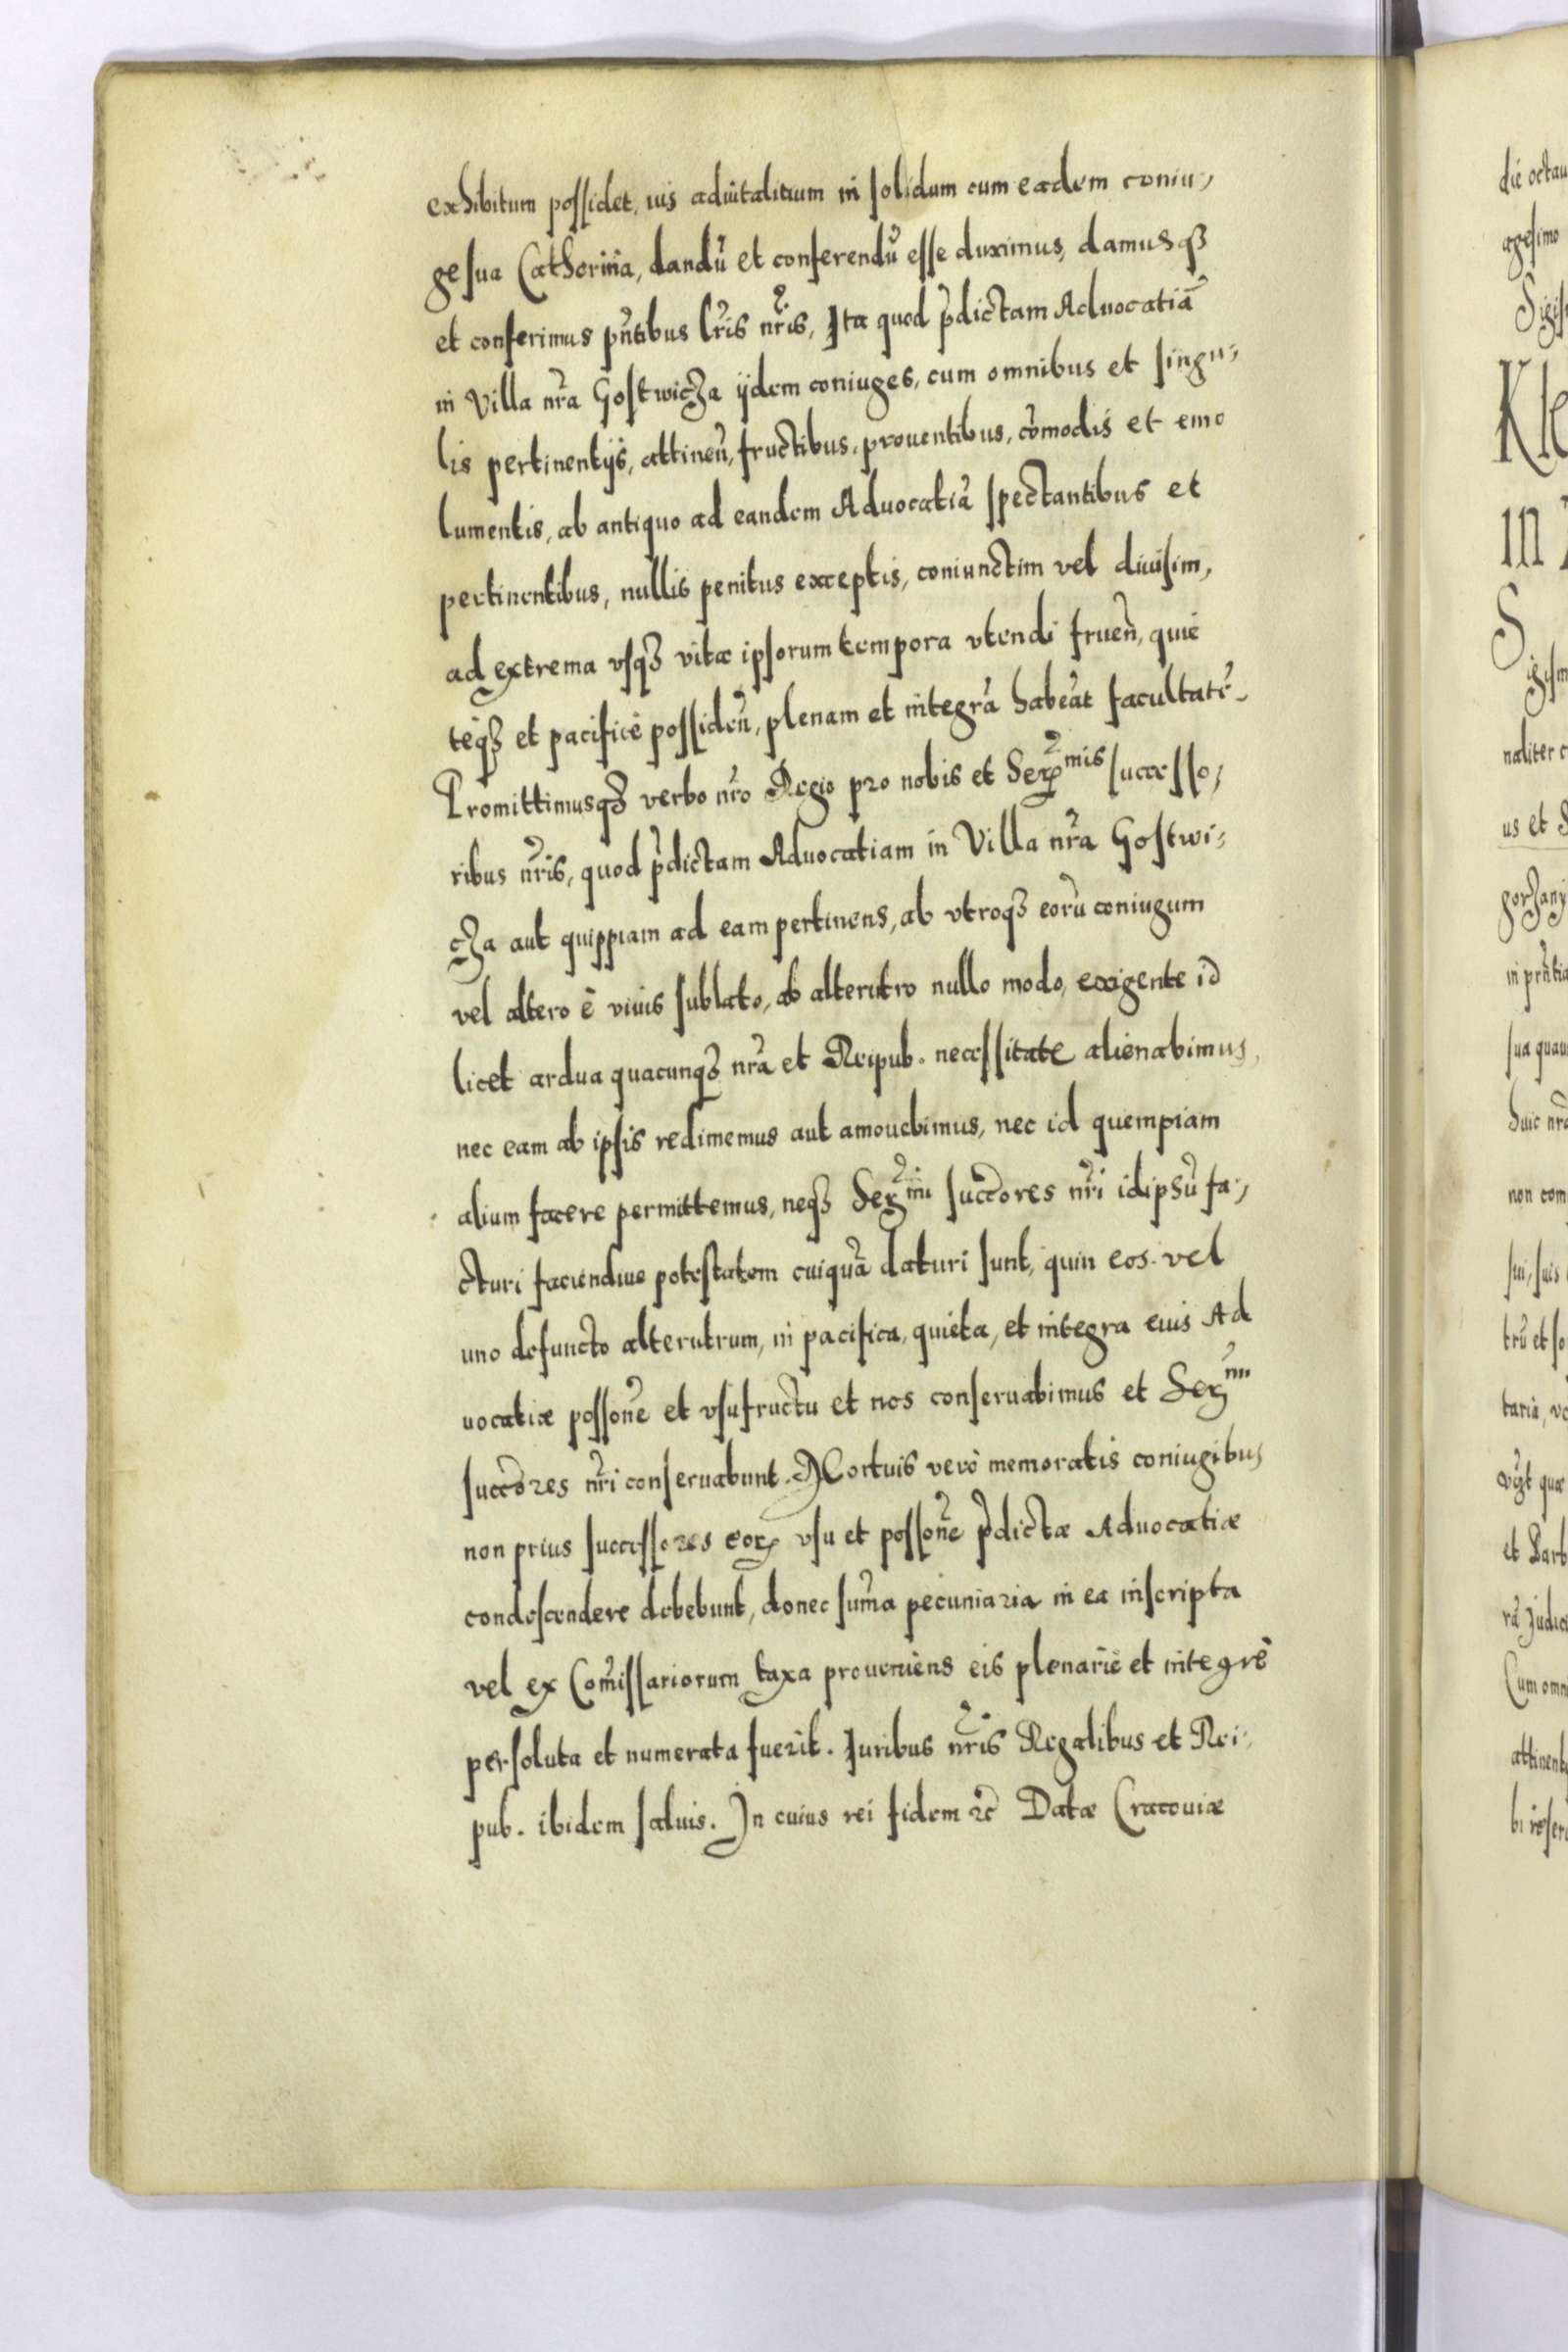 exhibitum possidet, ius aduitalitium in solidum cum eadem coniu,
ge sua Catherina, dandũ et conferendũ esse duximus, damusqȝ
et conferimus pñtibus lr̃is nr̃is, Ita quod p̃dictam Aduocatiã
in Villa nr̃a Gostwicza ijdem coniuges, cum omnibus et singu,
lis pertinentijs, attineñ, fructibus, prouentibus, com̃odis et emo
lumentis, ab antiquo ad eandem Aduocatiã spectantibus et
pertinentibus, nullis penitus exceptis, coniunctim vel diuisim,
ad extrema vsqȝ vitæ ipsorum tempora vtendi frueñ, quie
teqȝ et pacificè possideñ, plenam et integrã habeãt facultatẽ.
Promittimusqȝ verbo nr̃o Regio pro nobis et Serꝫ̃mis successo,
ribus nr̃is, quod p̃dictam Aduocatiam in Villa nr̃a Gostwi,
cza aut quippiam ad eam pertinens, ab vtroqȝ eorũ coniugum
vel altero è viuis sublato, ab alterutro nullo modo, exigente id
licet ardua quacunqȝ nr̃a et Reipub. necessitate alienabimus,
nec eam ab ipsis redimemus aut amouebimus, nec id quempiam
alium facere permittemus, neqȝ Serꝫ̃mi succõres nr̃i idipsũ fa,
cturi faciendiue potestatem cuiquã daturi sunt, quin eos vel
uno defuncto alterutrum, in pacifica, quieta, et integra eius Ad
uocatiæ possoñe et vsufructu et nos conseruabimus et Serꝫ̃mi
succõres nr̃i conseruabunt. Mortuis verò memoratis coniugibus
non prius successores eorꝝ vsu et possoñe p̃dictæ Aduocatiæ
condescendere debebunt, donec sum̃a pecuniaria in ea inscripta
vel ex Com̃issariorum taxa proueniens eis plenariè et integrè
persoluta et numerata fuerit. Iuribus nr̃is Regalibus et Rei,
pub. ibidem saluis. In cuius rei fidem ꝛc̃ Datæ Cracouiæ
die octau
agesimo
Kle
in
naliter
us et S
gorzany
sua
non com
sui, suis
trũ et so
et Barb
rã Iudic
Cum omn
attinent